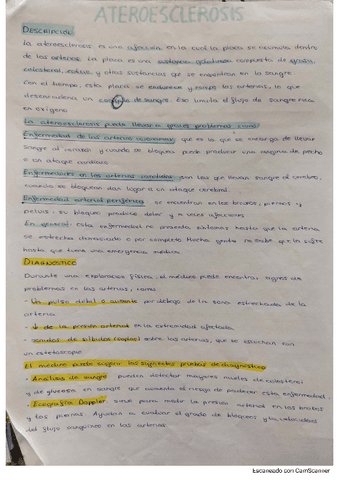 ATEROESCLEROSIS
DESCRIPCIÓN
La aterosclerosis, es una afección en la cual la placa se acumula dentro
de las arterias. La placa es una sustancia compuesta de grasa,
colesterol, calcio y otras sustancias que se encuentran en la sangre.
Con el tiempo, esta placa se endurece y las arterias, lo que
de sangre. Eso limita el flujo de sangre rica
en oxígeno
La aterosclerosis puede llevar a graves problemas como:
Enfermedad de las arterias coronarias: que es la que se encarga de llevar
sangre al corazón y cuando se bloquea puede producir una angina de pecho
o un ataque cardíaco
Enfermedades en las arterias carótidas: son las que llevan sangre al cerebro,
cuando se bloquean dan lugar a un ataque cerebral.
Enfermedad arterial periférica: se encuentran en los brazos, piernas y
pelvis. su bloqueo produce dolor y a veces infecciones
En general: esta enfermedad no presenta síntomas hasta que la arteria
se estrecha demasiado o por completo. Mucha gente no sabe que la sufre
hasta que tiene una emergencia médica
DIAGNÓSTICO
Durante una exploración física, el médico puede encontrar signos de
problemas en las arterias, como:
- Un pulso débil o ausente por debajo de la zona estrechada de la
arteria
- ↓ de la presión arterial en la extremidad afectada
- sonidos de silbidos (soplos) sobre las arterias, que se escuchan con
un estetoscopio
El médico puede sugerir las siguientes pruebas de diagnóstico
- Análisis de sangre: pueden detectar mayores niveles de colesterol
y de glucosa en sangre que aumenta el riesgo de padecer esta enfermedad.
- Ecografía Doppler: sirve para medir la presión arterial en los brazos
y las piernas. Ayudan a evaluar el grado de bloqueo y la velocidad
del flujo sanguíneo en las arterias
Escaneado con CamScanner